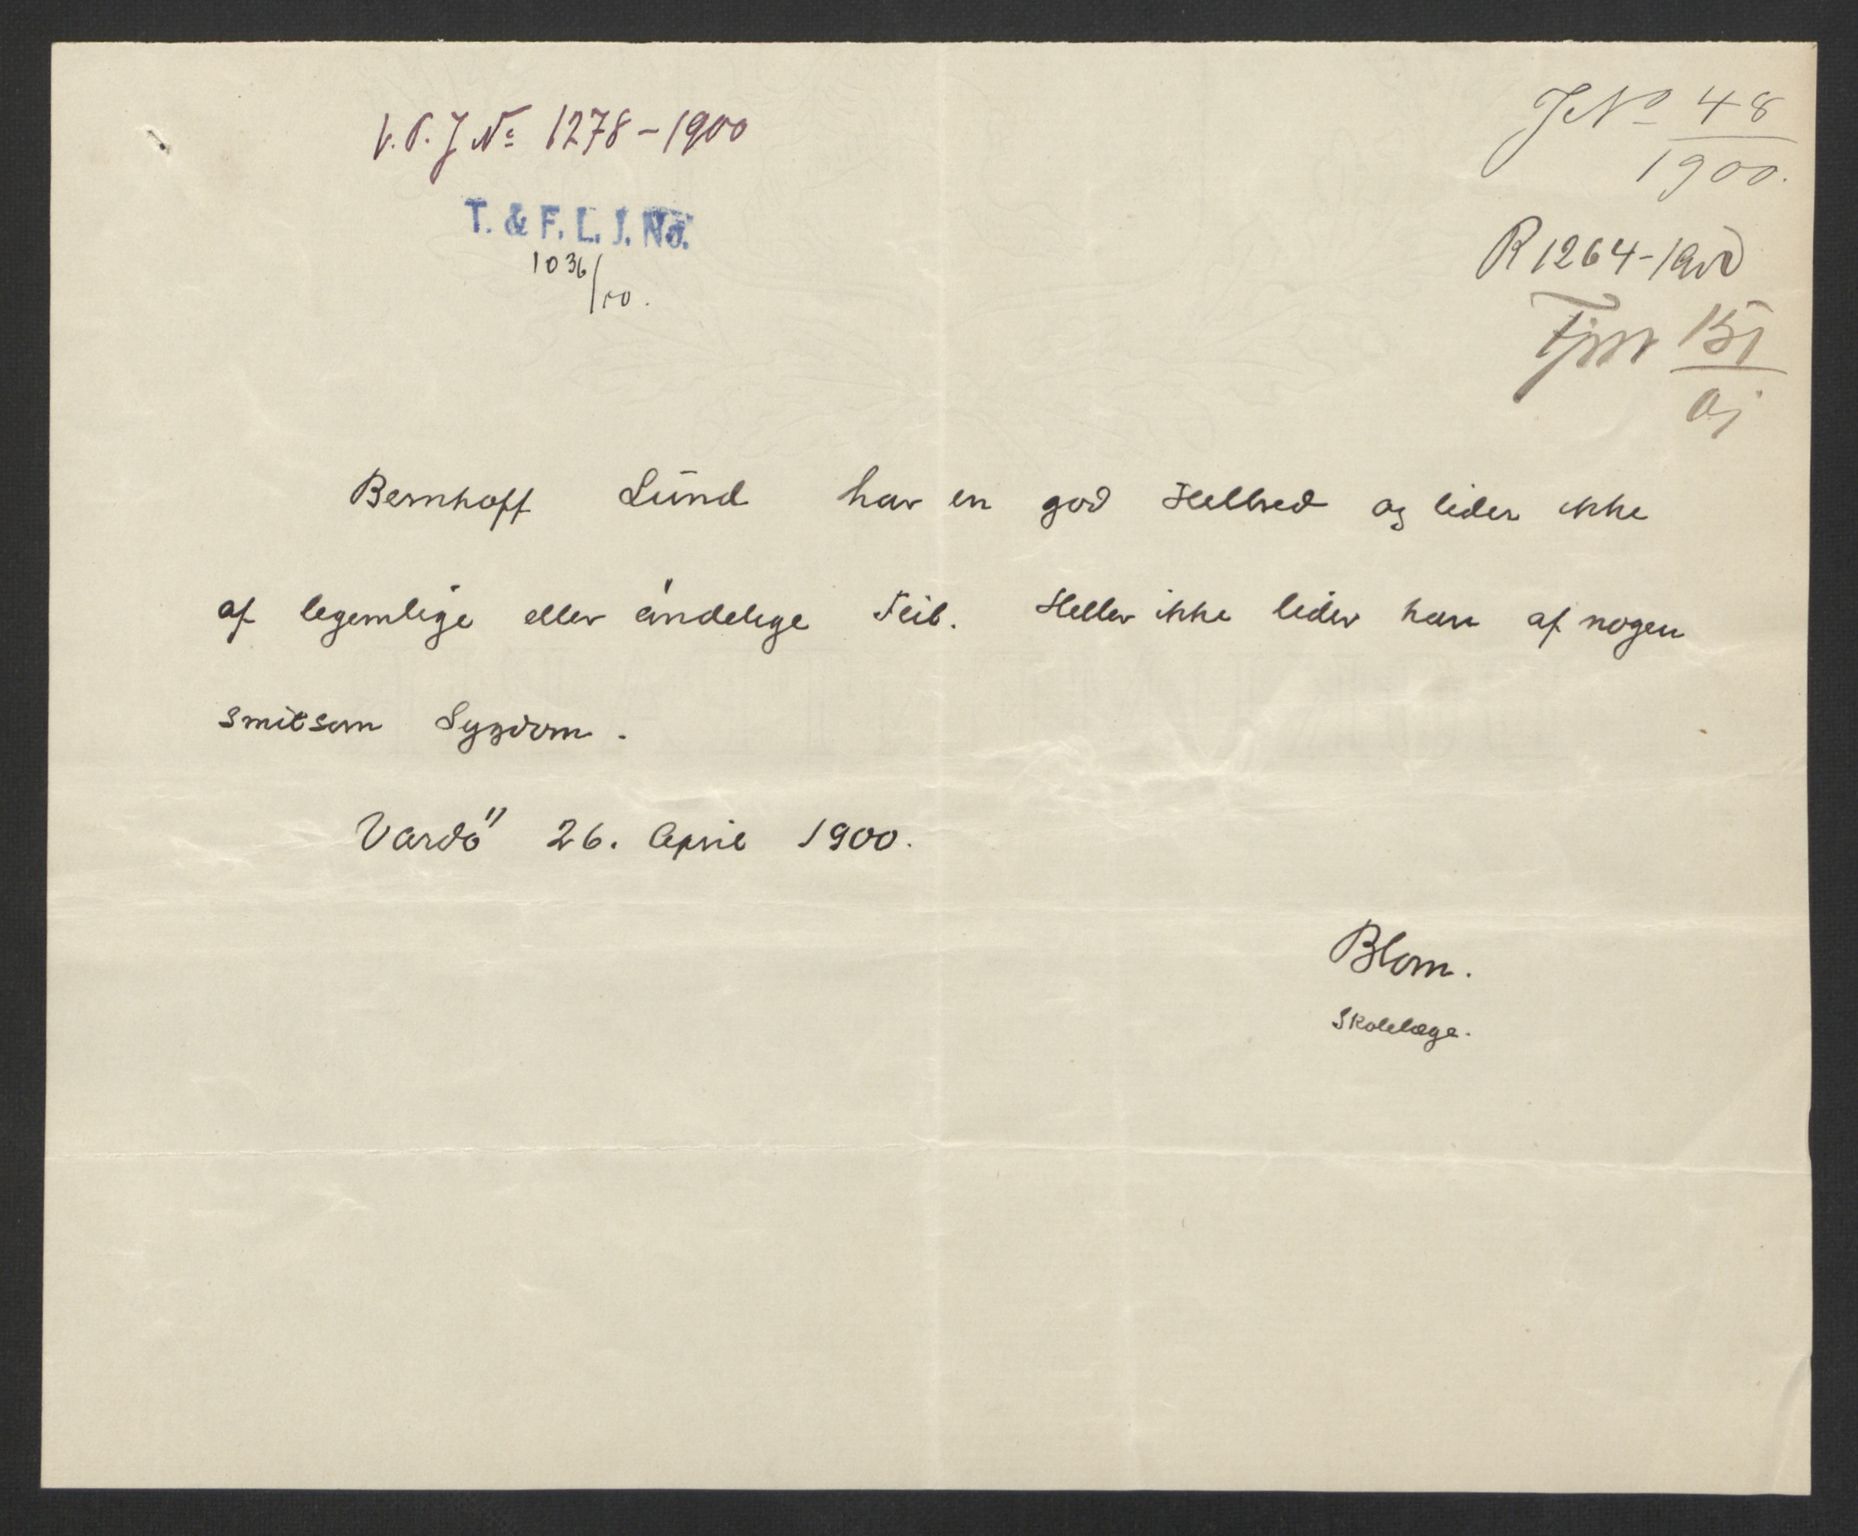 V.P.J No 1278-1900
T. & F. L. J. No.
1036/00.
JNo 48
1900.
R 1264-1900
151
01
Bernhoff Lund har en god Helbred og lider ikke
af legemlige eller åndelige Feil. Heller ikke lider han af nogen
smitsom Sygdom.
Vardö 26. April 1900.
Blom.
Skolelæge.